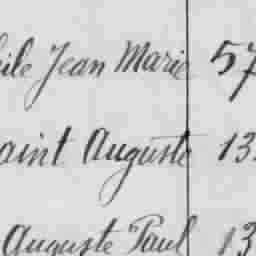 ile Jean Marie 57
aint Auguste 13
Auguste Paul 13